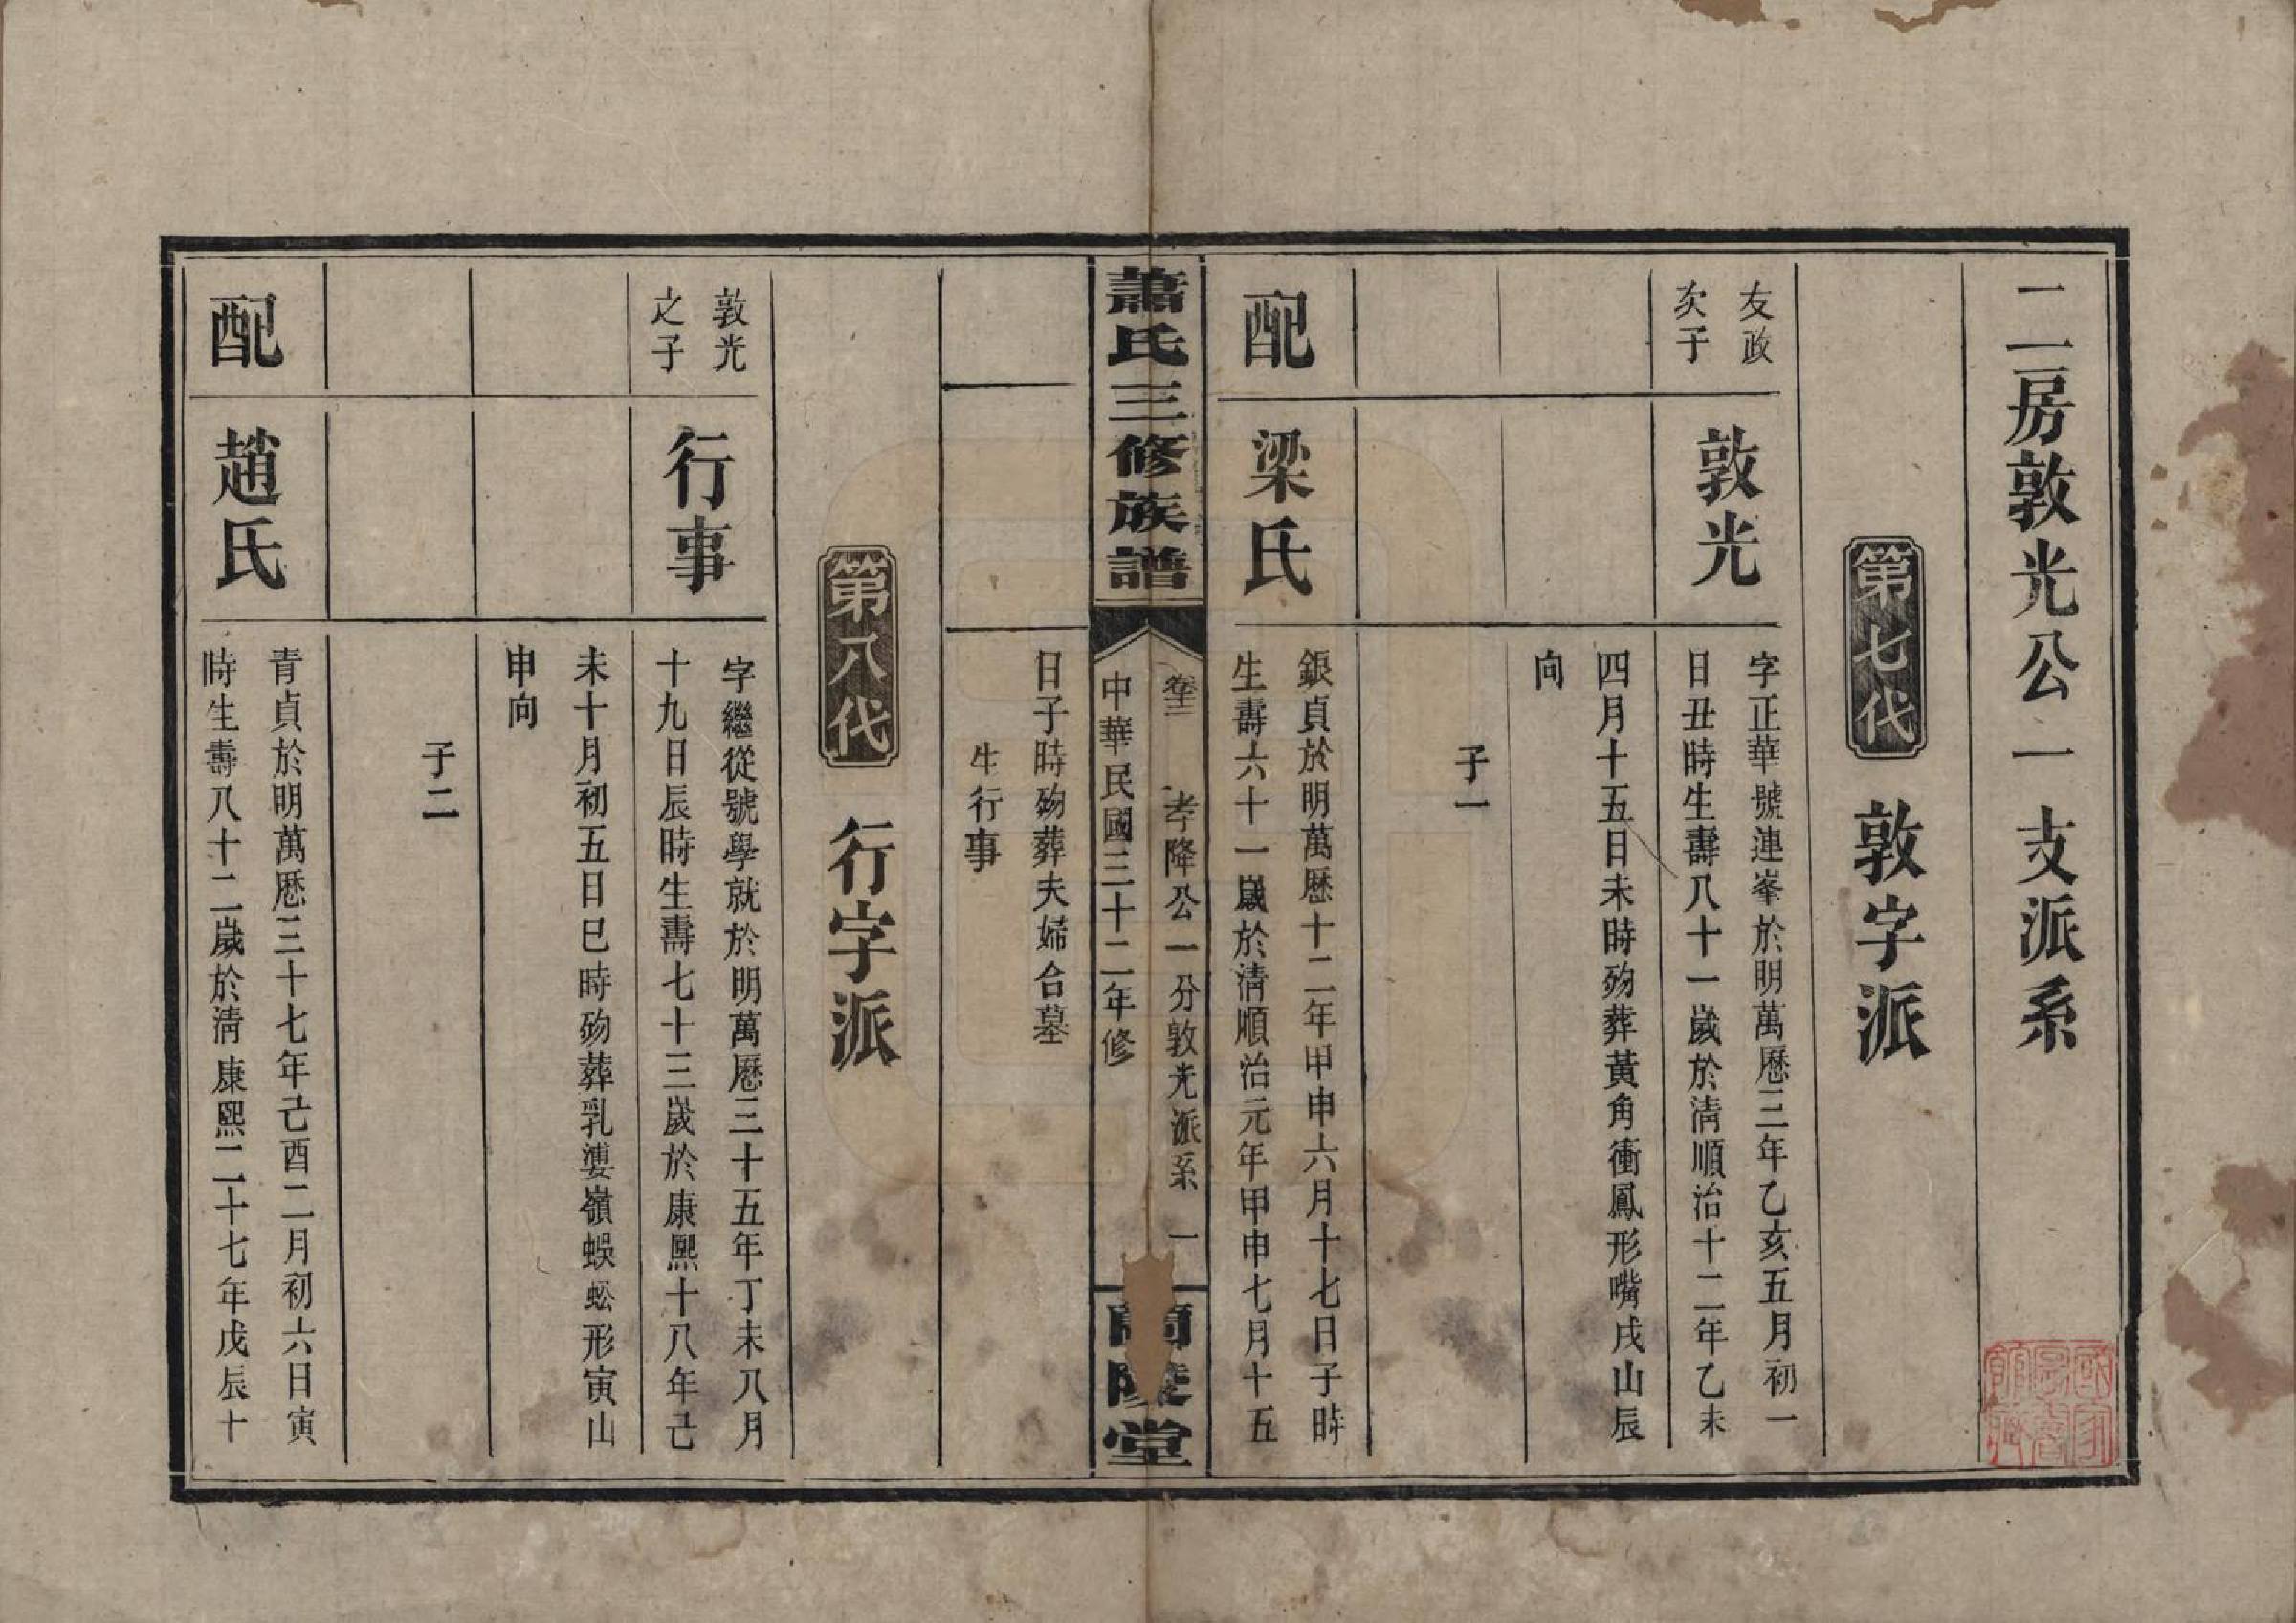 二房敦光公一支派系
第七代　敦字派
友政
次子
敦光
字正華號連峯於明萬曆三年乙亥五月初一
日丑時生壽八十一歲於清順治十二年乙未
四月十五日未時歿葬黃角衝鳳形嘴戌山辰
向
子一
配
梁氏
銀貞於明萬曆十二年甲申六月十七日子時
生壽六十一歲於清順治元年甲申七月十五
蕭氏三修族譜
孝降公一分敦光派系　一
中華民國三十二年修
蘭陵堂
日子時歿葬夫婦合墓
生行事
第八代　行字派
敦光
之子
行事
字繼從號學就於明萬曆三十五年丁未八月
十九日辰時生壽七十三歲於康熙十八年己
未十月初五日巳時歿葬乳婆嶺蜈蚣形寅山
申向
子二
配
趙氏
青貞於明萬曆三十七年己酉二月初六日寅
時生壽八十二歲於清康熙二十七年戊辰十